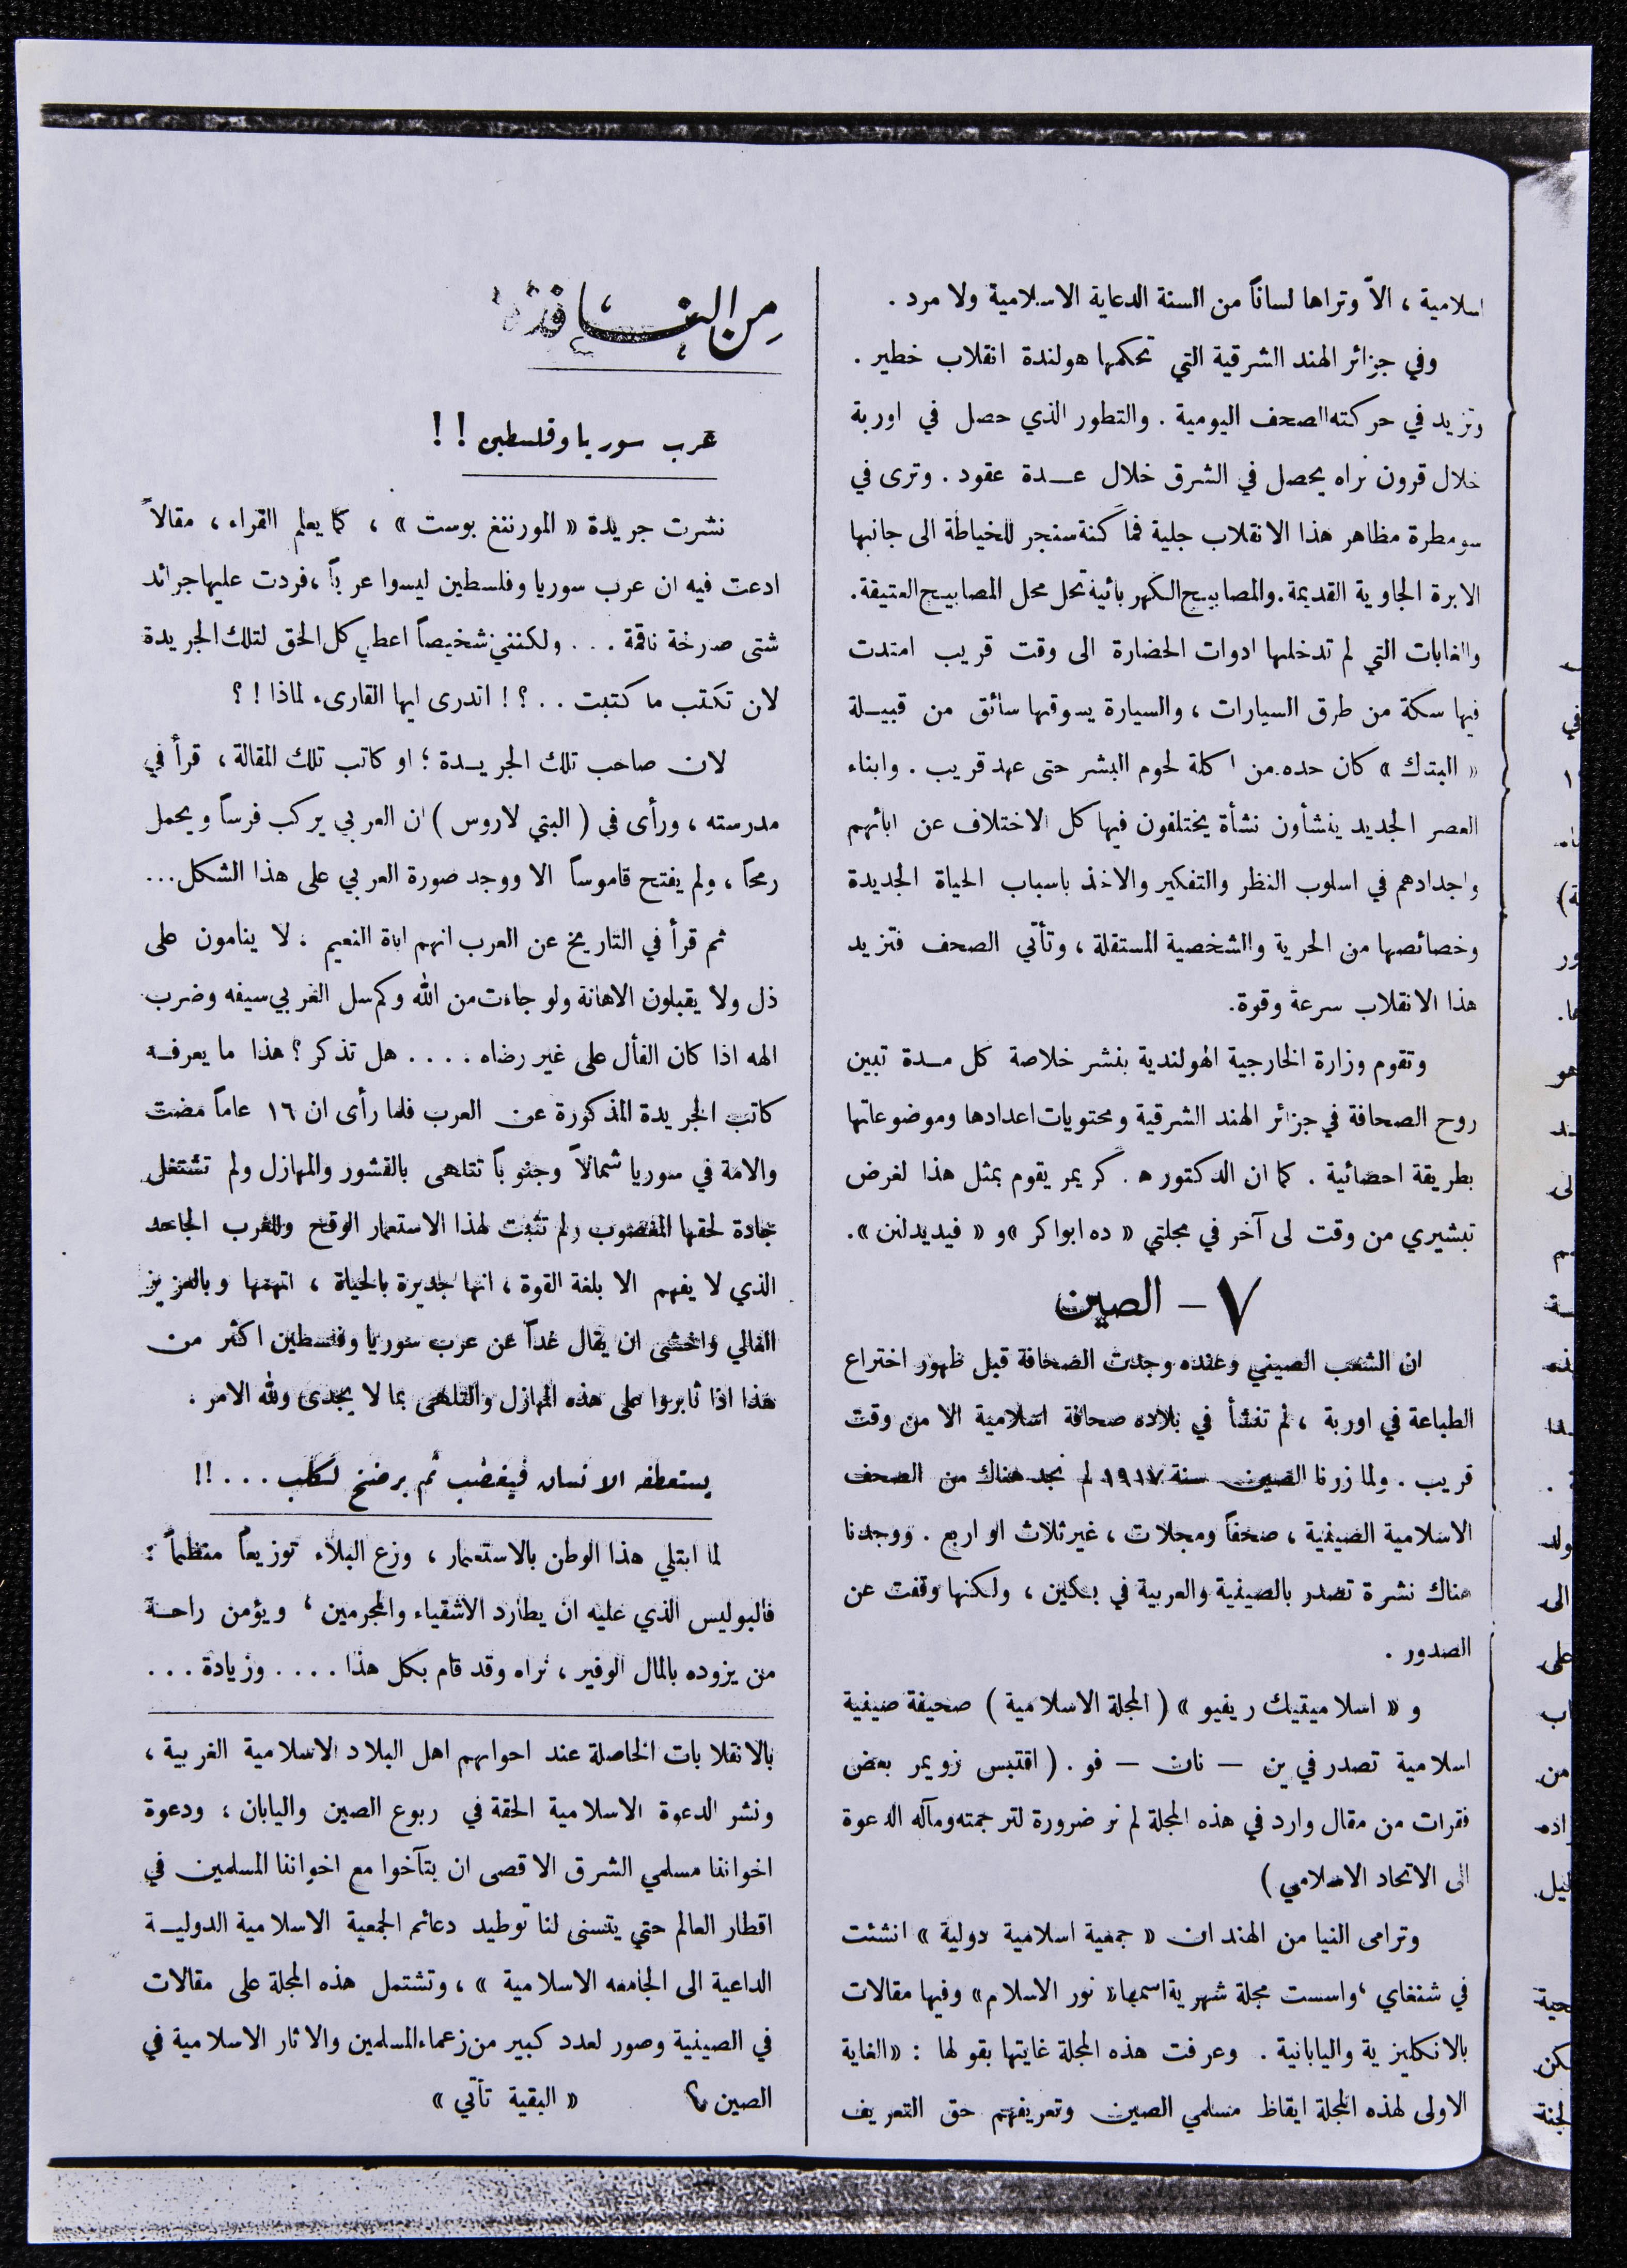 اسلامية ، الاّ وتراها لساناً من السنة الدعاية الاسلامية ولا مرد .
وفي جزائر الهند الشرقية التي تحكمها هولندة انقلاب خطير .
وتزيد في حركته الصحف اليومية . والتطور الذي حصل في اوربة
خلال قرون نراه يحصل في الشرق خلال عـــدة عقود . وترى في
سومطرة مظاهر هذا الانقلاب جلية فماكنة سنجر للخياطة الى جانبها
الابرة الجاوية القديمة . والمصابيح الكهربائية تحل محل المصابيح العتيقة .
والغابات التي لم تدخلها ادوات الحضارة الى وقت قريب امتدت
فيها سكة من طرق السيارات ، والسيارة يسوقها سائق من قبيـــلة
« البتك » كان حده من اكلة لحوم البشر حتى عهد قريب . وابناء
العصر الجديد ينشأون نشأة يختلفون فيها كل الاختلاف عن ابائهم
واجدادهم في اسلوب النظر والتفكير والاخذ باسباب الحياة الجديدة
وخصائصها من الحرية والشخصية المستقلة ، وتأتي الصحف فتزيد
هذا الانقلاب سرعة وقوة .
وتقوم وزارة الخارجية الهولندية بنشر خلاصة كل مـــدة تبين
روح الصحافة في جزائر الهند الشرقية ومحتويات اعدادها وموضوعاتها
بطريقة احصائية . كما ان الدكتور ه . كريمر يقوم بمثل هذا لغرض
تبشيري من وقت لى آخر في مجلتي « ده ابواكر » و « فيديدلنن » .
٧ – الصين
ان الشعب الصيني وعنده وجدت الصحافة قبل ظهور اختراع
الطباعة في اوربة ، لم تنشأ في بلاده صحافة اسلامية الا من وقت
قريب . ولما زرنا الصين سنة ١٩١٧ لم نجد هناك من الصحف
الاسلامية الصينية ، صحفاً ومجلات ، غير ثلاث او اربع . ووجدنا
هناك نشرة تصدر بالصينية والعربية في بكين ، ولكنها وقفت عن
الصدور .
و « اسلاميتيك ريفيو » ( المجلة الاسلامية ) صحيفة صينية
اسلامية تصدر في ين — نان — فو . ( اقتبس زويمر بعض
فقرات من مقال وارد في هذه المجلة لم نر ضرورة لترجمته ومآله الدعوة
الى الاتحاد الاسلامي )
وترامى الينا من الهند ان « جمعية اسلامية دولية » انشئت
في شنغاي ، واسست مجلة شهرية اسمها « نور الاسلام » وفيها مقالات
بالانكليزية واليابانية . وعرفت هذه المجلة غايتها بقولها : « الغاية
الاولى لهذه المجلة ايقاظ مسلمي الصين وتعريفهم حق التعريف
من النافذة
عرب سوريا وفلسطين ! !
نشرت جريدة « المورننغ بوست » ، كما يعلم القراء ، مقالاً
ادعت فيه ان عرب سوريا وفلسطين ليسوا عرباً ، فردت عليها جرائد
شتى صارخة ناقمة . . . ولكنني شخيصاً اعطي كل الحق لتلك الجريدة
لان تكتب ما كتبت . . ؟ ! اتدرى ايها القارىء لماذا ! ؟
لان صاحب تلك الجريـــدة ؛ او كاتب تلك المقالة ، قرأ في
مدرسته ، ورأى في ( البتي لاروس ) ان العربي يركب فرساً ويحمل
رمحاً ، ولم يفتح قاموساً الا ووجد صورة العربي على هذا الشكل . . .
ثم قرأ في التاريخ عن العرب انهم اباة النعيم . لا ينامون على
ذل ولا يقبلون الاهانة ولو جاءت من الله وكم سل الغربي سيفه وضرب
الهه اذا كان الفأل على غير رضاه . . . . هل تذكر ؟ هذا ما يعرفـــه
كاتب الجريدة المذكورة عن العرب فلما رأى ان ١٦ عاماً مضت
والامة في سوريا شمالاً وجنوباً تتلهى بالقشور والمهازل ولم تشتغل
جادة لحقها المغصوب ولم تثبت لهذا الاستعمار الوقح والغرب الجاحد
الذي لا يفهم الا بلغة القوة ، انها جديرة بالحياة ، اتهمها وبالعزيز
الغالي واخشى ان يقال غداً عن عرب سوريا وفلسطين اكثر من
هذا اذا ثابروا على هذه المهازل والتلهى بما لا يجدى ولله الامر .
يستعطف الانسان فيغضب ثم يرضخ لكلب . . . !!
لما ابتلي هذا الوطن بالاستعمار ، وزع البلاء توزيعاً منظماً :
فالبوليس الذي عليه ان يطارد الاشقياء والمجرمين ، ويؤمن راحـــة
من يزوده بالمال الوفير ، نراه وقد قام بكل هذا . . . . وزيادة . . .
بالانقلابات الحاصلة عند اخوانهم اهل البلاد الاسلامية الغربية ،
ونشر الدعوة الاسلامية الحقة في ربوع الصين واليابان ، ودعوة
اخواننا مسلمي الشرق الاقصى ان يتآخوا مع اخواننا المسلمين في
اقطار العالم حتي يتسنى لنا توطيد دعائم الجمعية الاسلامية الدوليـــة
الداعية الى الجامعه الاسلامية » ، وتشتمل هذه المجلة على مقالات
في الصينية وصور لعدد كبير من زعماء المسلمين والاثار الاسلامية في
الصين « البقية تأتي »